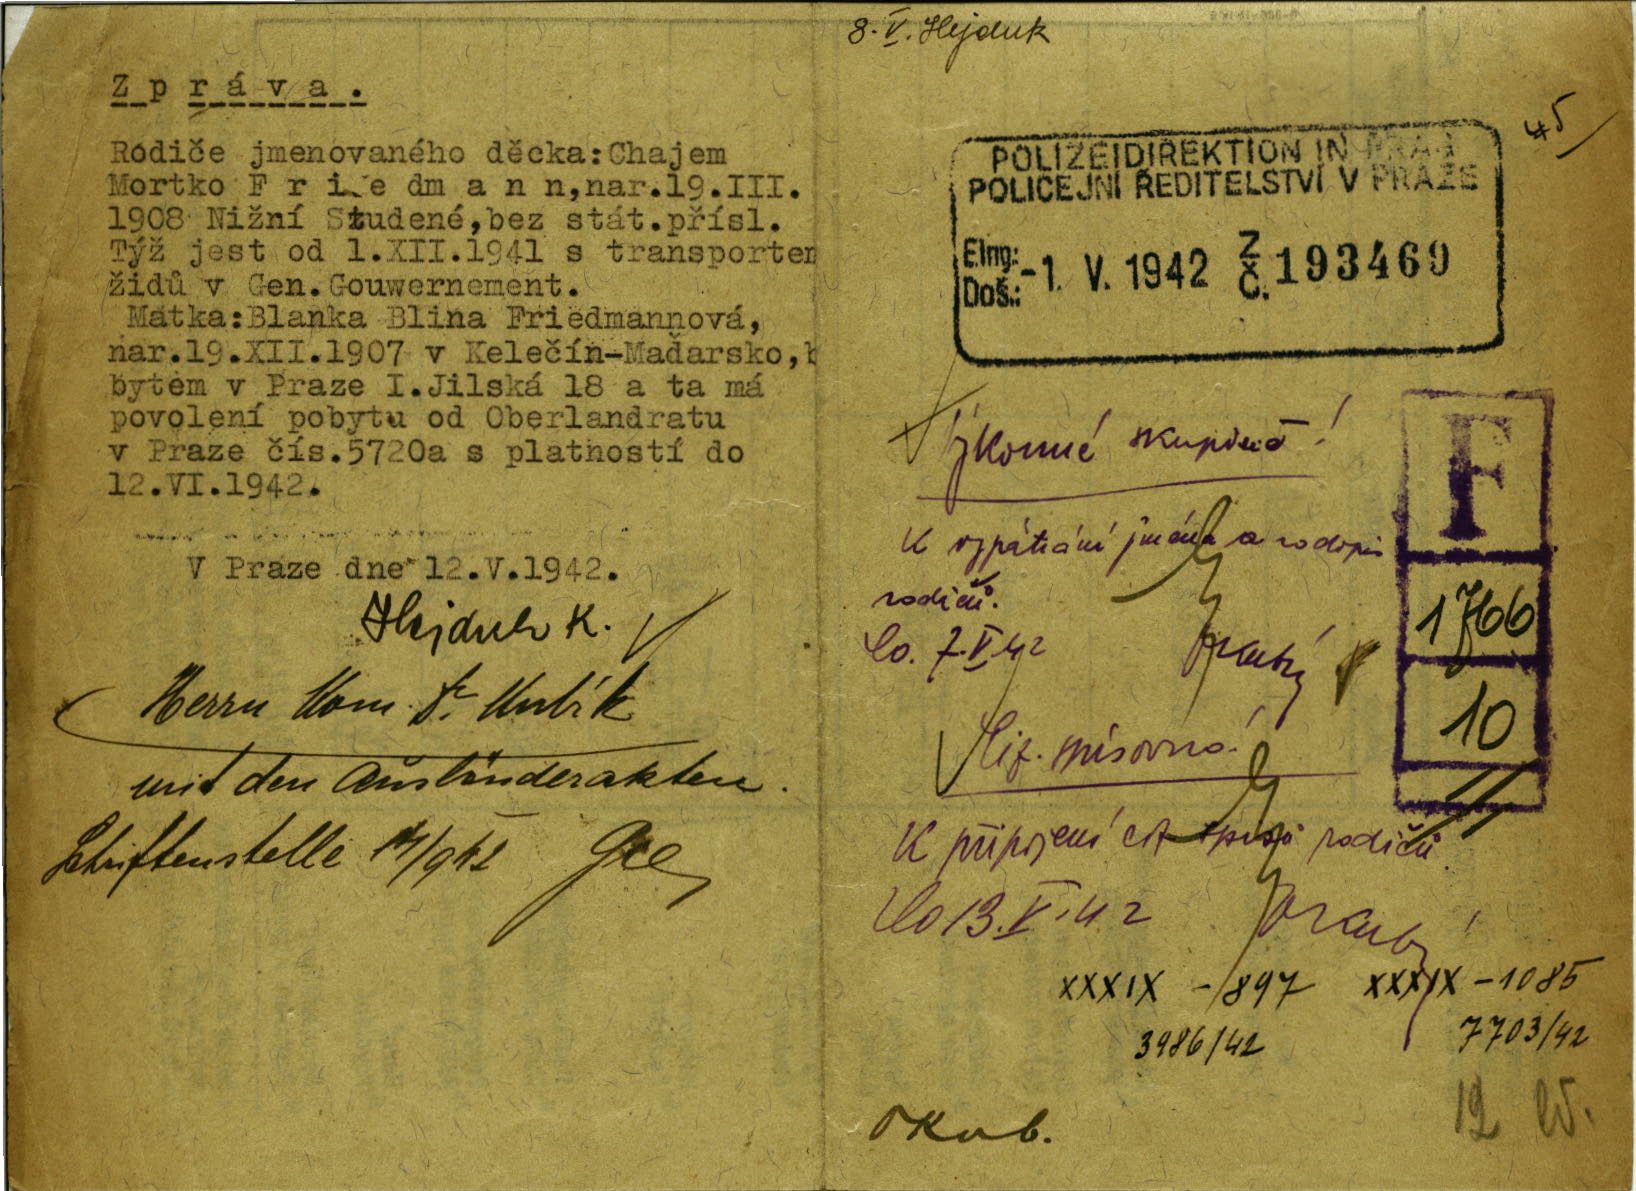 Z p r á v a .
Rodiče jmenovaného děcka:Chajem
Mortko F r i e dm a n n,nar.19.III.
1908 Nižní Studené,bez stát.přísl.
Týž jest od 1.XII.1941 s transportem
židů v Gen.Gouwernement.
Matka:Blanka Blina Friedmannová,
nar.19.XII.1907 v Kelečín-Maďarsko,b
bytem v Praze I.Jilská 18 a ta má
povolení pobytu od Oberlandratu
v Praze čís.5720a s platností do
12.VI.1942.
V Praze dne 12.V.1942.
Hejduk K.
Herrn Kom. Dr.
mit den Ausländerakten.
Schriftenstelle
8.V. Hejduk
45
POLIZEIDIREKTION IN PRAG
POLICEJNÍ ŘEDITELSTVÍ V PRAZE
Eing:
Doš.:
-1. V. 1942
Z
Č. 193469
Výkonné skupině!
K vypátrání jména a rodopis
rodičů.
7.V.42
F
1766
10
K připojení spisů rodičů
13.V.42
XXXIX - 897
XXXIX - 1085
3986/42
7703/42
12